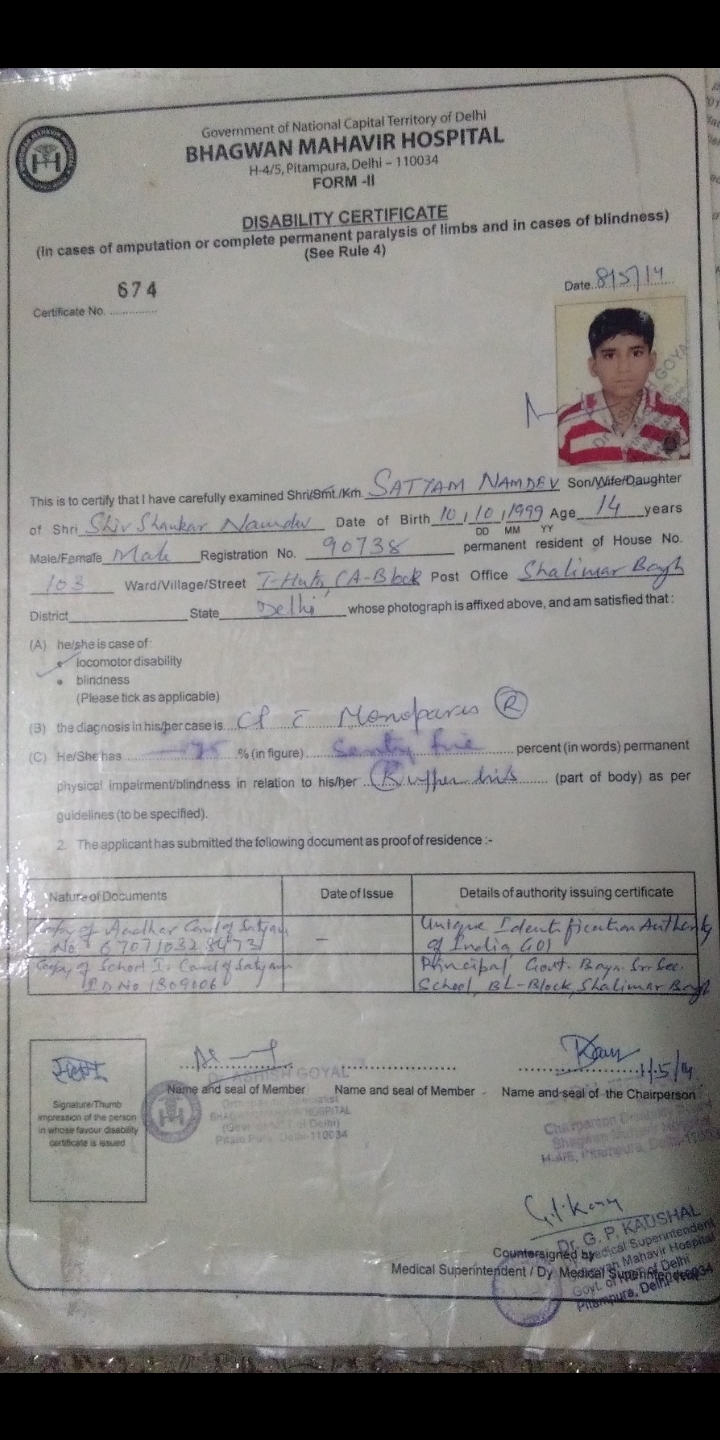 Government of National Capital Territory of Delhi
BHAGWAN MAHAVIR HOSPITAL
H-4/5, Pitampura, Delhi – 110034
FORM -II
DISABILITY CERTIFICATE
(In cases of amputation or complete permanent paralysis of limbs and in cases of blindness)
(See Rule 4)
Certificate No. 674
Date. 8/5/14
This is to certify that I have carefully examined Shri/Smt./Km. SATYAM NAMDEV Son/Wife/Daughter
of Shri Shiv Shankar Namdev Date of Birth 10/10/1999 Age 14 years
DD MM YY
Male/Female Male Registration No. 90738 permanent resident of House No.
103 Ward/Village/Street T-Huts, CA-Block Post Office Shalimar Bagh
District State Delhi whose photograph is affixed above, and am satisfied that :
(A) he/she is case of:
• locomotor disability
• blindness
(Please tick as applicable)
(B) the diagnosis in his/her case is CP Monoparesis R
(C) He/She has % (in figure) percent (in words) permanent
physical impairment/blindness in relation to his/her R upper (part of body) as per
guidelines (to be specified).
2. The applicant has submitted the following document as proof of residence :-
Nature of Documents Date of Issue Details of authority issuing certificate
Copy of Aadhar Card of Satyam – Unique Identification Authority
No. of India GOI
Copy of School I. Card of Satyam Principal, Govt. Boys. Sr. Sec.
I D No School, BL-Block, Shalimar Bagh
सत्यम
Signature/Thumb
impression of the person
in whose favour disability
certificate is issued
Name and seal of Member
Name and seal of Member
Name and seal of the Chairperson
Dr. ASHISH GOYAL
Delhi-110034
Dr. G. P. KAUSHAL
Countersigned by
Medical Superintendent
Bhagwan Mahavir Hospital
Medical Superintendent / Dy Medical Superintendent
Govt. of NCT of Delhi
Pitampura, Delhi-110034